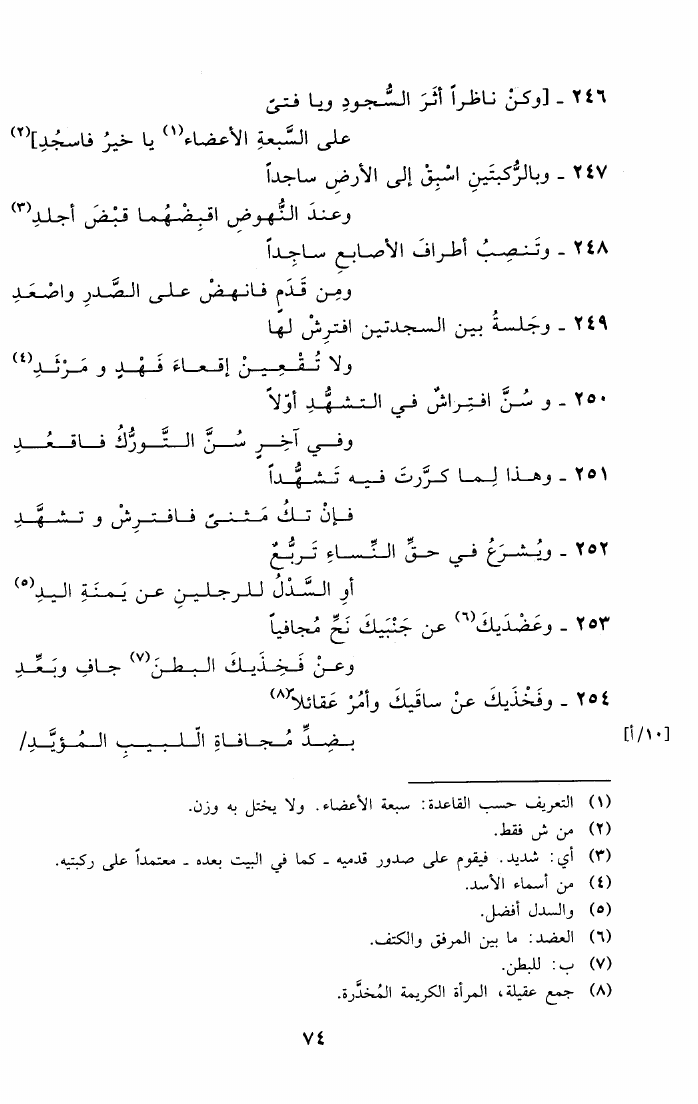 ٢٤٦ - [وكنْ ناظراً أثَرَ السُّجودِ ويا فتىً
على السَّبعةِ الأعضاء(١) يا خيرُ فاسجُدِ](٢)
٢٤٧ - وبالرُّكبتَينِ اسْبِقْ إلى الأرضِ ساجداً
وعندَ النُّهوضِ اقبِضْهُما قبْضَ أجلدِ(٣)
٢٤٨ - وتَنصِبُ أطرافَ الأصابعِ ساجِداً
ومِن قَدَمٍ فانهضْ على الصَّدرِ واصْعَدِ
٢٤٩ - وجَلسةُ بين السجدتين افترشْ لها
ولا تُقْعِيَنْ إقعاءَ فَهْدٍ و مَرْثَدِ(٤)
٢٥٠ - و سُنَّ افتِراشٌ في التشهُّدِ أوّلاً
وفي آخِرٍ سُنَّ التَّورُّكُ فاقعُدِ
٢٥١ - وهذا لِما كرَّرتَ فيه تَشهُّداً
فإنْ تكُ مَثنىً فافترِشْ و تشهَّدِ
٢٥٢ - ويُشرَعُ في حقِّ النِّساءِ تَربُّعٌ
أوِ السَّدْلُ للرجلينِ عن يَمنَةِ اليدِ(٥)
٢٥٣ - وعَضْدَيكَ(٦) عن جَنْبَيكَ نَحِّ مُجافياً
وعنْ فَخِذَيكَ البطنَ(٧) جافِ وبَعِّدِ
٢٥٤ - وفَخْذَيكَ عنْ ساقَيكَ وأمُرْ عَقائلاً(٨)
بضِدِّ مُجافاةِ اللّبيبِ المُؤيَّدِ/ [١٠/أ]
(١) التعريف حسب القاعدة: سبعة الأعضاء. ولا يختل به وزن.
(٢) من ش فقط.
(٣) أي: شديد. فيقوم على صدور قدميه ـ كما في البيت بعده ـ معتمداً على ركبتيه.
(٤) من أسماء الأسد.
(٥) والسدل أفضل.
(٦) العضد: ما بين المرفق والكتف.
(٧) ب: للبطن.
(٨) جمع عقيلة، المرأة الكريمة المُخدَّرة.
٧٤